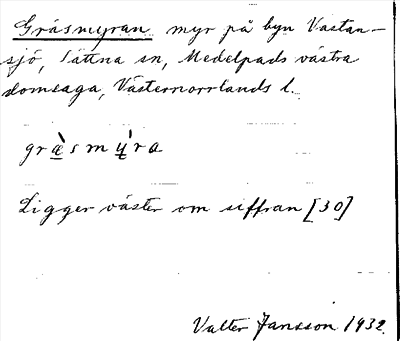 Gräsmyran myr på byn Västan-
sjö, Sättna sn, Medelpads västra
domsaga, Västernorrlands l.
græ̀smy̾ra
Ligger väster om siffran [30]
Valter Jansson 1932.